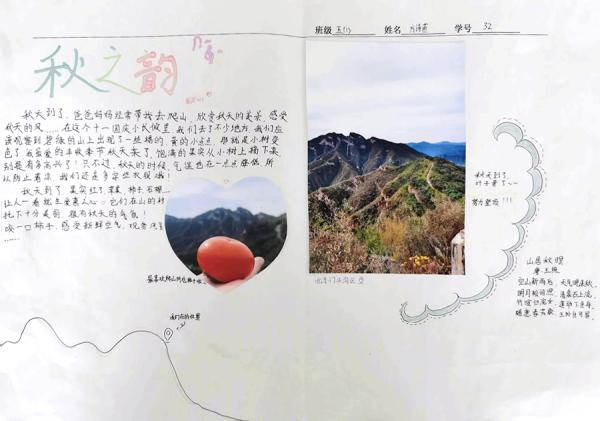 班级 五(1) 姓名 学号 32
秋之韵
秋天到了，爸爸妈妈经常带我去爬山，欣赏秋天的美景，感受
秋天的风……在这个十一国庆小长假里，我们去了不少地方，我们应
该观察到碧绿的山上出现了一些橘的、黄的小点点，那就是小树变
色了。我最爱的丰收季节秋天来了，饱满的果实从小树上摘下来
别提有多高兴了！只不过，秋天的时候，气温也在一点点降低，所
以防止着凉，我们还是多穿些衣服哦！
秋天到了，果实红了，苹果、柿子、石榴…
让人一看就喜爱
托下十分美丽，很有秋天的气息！
咬一口柿子，感受新鲜空气，观赏
……
最喜欢爬山时吃柿子啦
我们在的位置
北京门头沟区
秋天到了，
叶子黄了～
努力坚持！！！
山居秋暝
唐·王维
空山新雨后，天气晚来秋。
明月松间照，清泉石上流。
竹喧归浣女，莲动下渔舟。
随意春芳歇，王孙自可留。